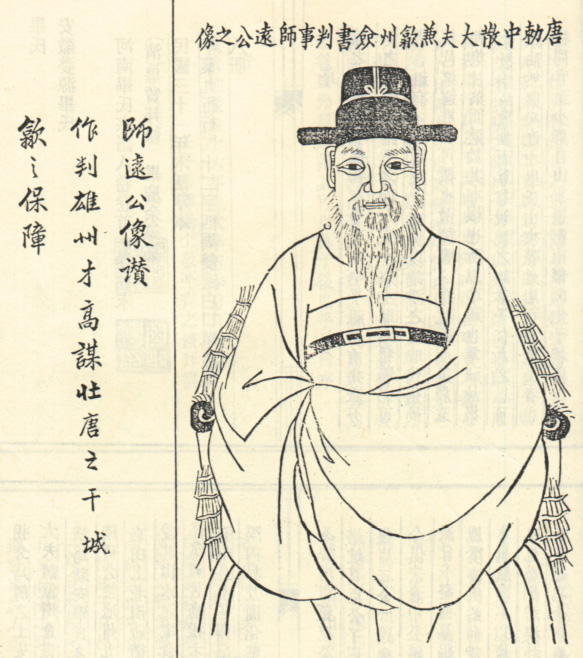 唐勅中散大夫兼歙州僉書判事師遠公之像
師遠公像讃
作判雄州才高謀壯唐之干城
歙之保障